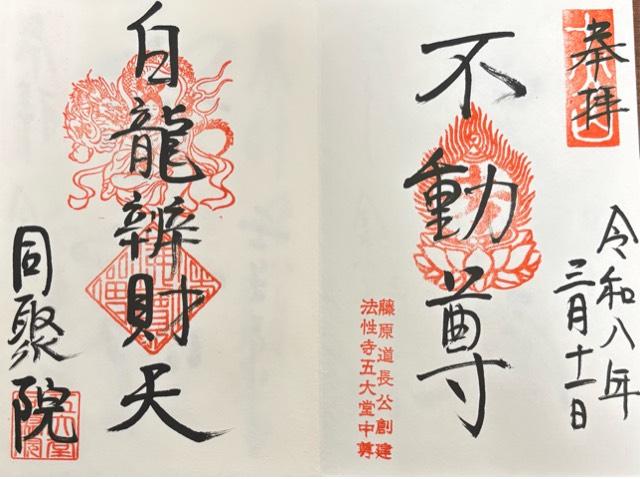 奉拝
令和八年
三月十一日
不動尊
藤原道長公創建
法性寺五大堂中尊
白龍辨財天
同聚院